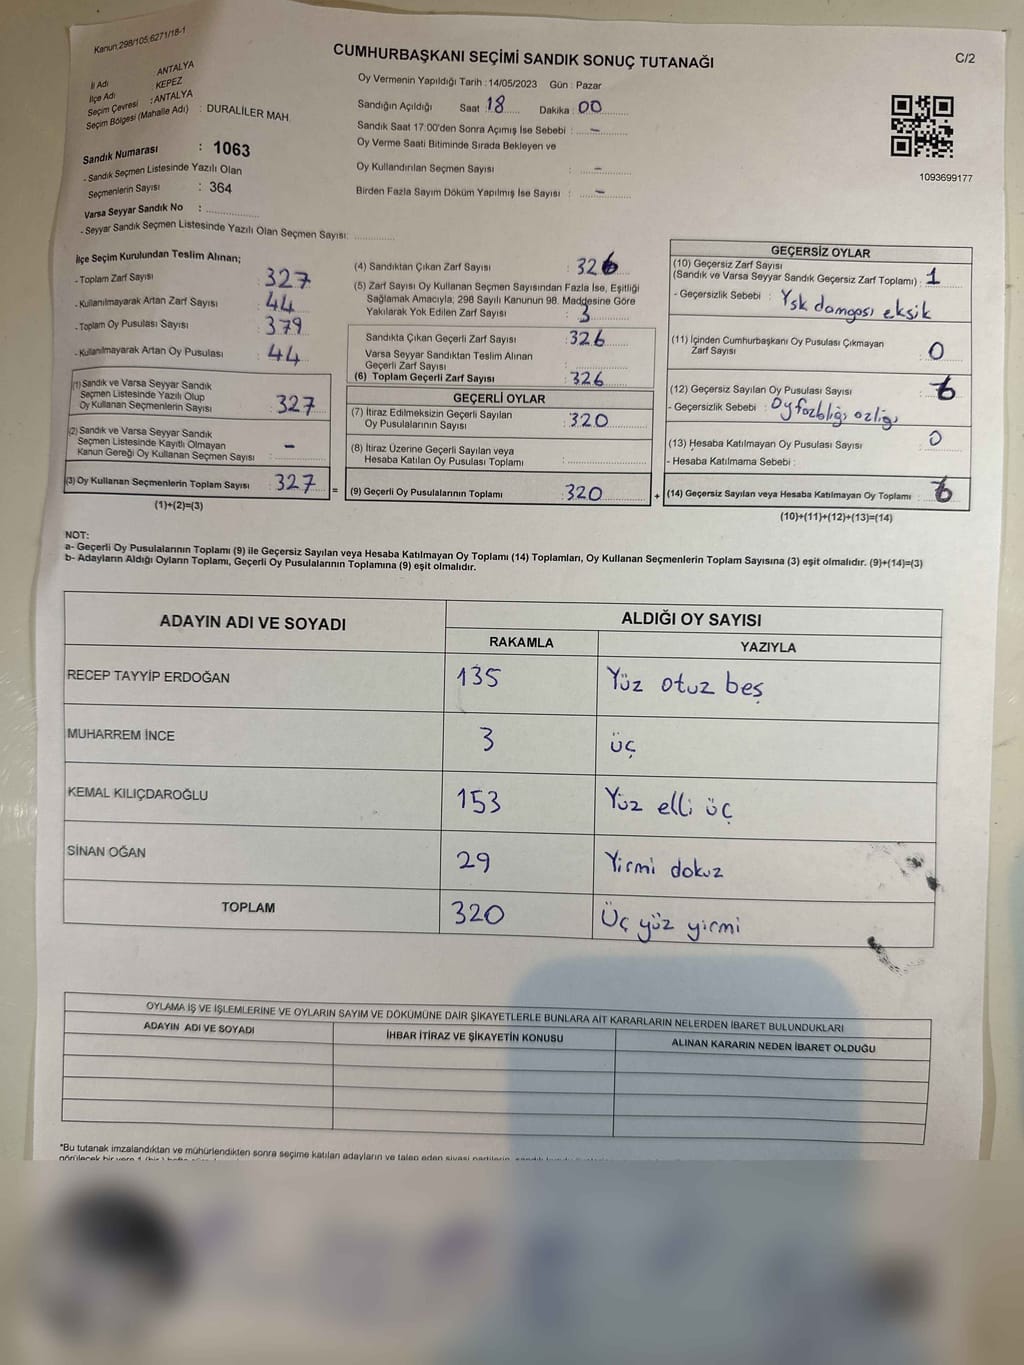 Kanun.298/105;6271/18-1
CUMHURBAŞKANI SEÇİMİ SANDIK SONUÇ TUTANAĞI
C/2
İl Adı ANTALYA
İlçe Adı :KEPEZ
Seçim Çevresi :ANTALYA
Seçim Bölgesi (Mahalle Adı) : DURALİLER MAH.
Oy Vermenin Yapıldığı Tarih :14/05/2023 Gün : Pazar
Sandığın Açıldığı Saat 18 Dakika : 00
Sandık Saat 17:00'den Sonra Açımış İse Sebebi : –
Oy Verme Saati Bitiminde Sırada Bekleyen ve
Oy Kullandırılan Seçmen Sayısı : –
Birden Fazla Sayım Döküm Yapılmış İse Sayısı : –
1093699177
Sandık Numarası : 1063
- Sandık Seçmen Listesinde Yazılı Olan
Seçmenlerin Sayısı : 364
Varsa Seyyar Sandık No :
- Seyyar Sandık Seçmen Listesinde Yazılı Olan Seçmen Sayısı:
İlçe Seçim Kurulundan Teslim Alınan;
- Toplam Zarf Sayısı : 327
- Kullanılmayarak Artan Zarf Sayısı : 44
- Toplam Oy Pusulası Sayısı : 379
- Kullanılmayarak Artan Oy Pusulası : 44
(1) Sandık ve Varsa Seyyar Sandık
Seçmen Listesinde Yazılı Olup
Oy Kullanan Seçmenlerin Sayısı : 327
(2) Sandık ve Varsa Seyyar Sandık
Seçmen Listesinde Kayıtlı Olmayan
Kanun Gereği Oy Kullanan Seçmen Sayısı : –
(3) Oy Kullanan Seçmenlerin Toplam Sayısı : 327 =
(1)+(2)=(3)
(4) Sandıktan Çıkan Zarf Sayısı : 326
(5) Zarf Sayısı Oy Kullanan Seçmen Sayısından Fazla İse, Eşitliği
Sağlamak Amacıyla; 298 Sayılı Kanunun 98. Maddesine Göre
Yakılarak Yok Edilen Zarf Sayısı : 3
Sandıkta Çıkan Geçerli Zarf Sayısı : 326
Varsa Seyyar Sandıktan Teslim Alınan
Geçerli Zarf Sayısı :
(6) Toplam Geçerli Zarf Sayısı : 326
GEÇERLİ OYLAR
(7) İtiraz Edilmeksizin Geçerli Sayılan
Oy Pusulalarının Sayısı : 320
(8) İtiraz Üzerine Geçerli Sayılan veya
Hesaba Katılan Oy Pusulası Toplamı :
(9) Geçerli Oy Pusulalarının Toplamı : 320 +
GEÇERSİZ OYLAR
(10) Geçersiz Zarf Sayısı
(Sandık ve Varsa Seyyar Sandık Geçersiz Zarf Toplamı) : 1
- Geçersizlik Sebebi : Ysk damgası eksik
(11) İçinden Cumhurbaşkanı Oy Pusulası Çıkmayan
Zarf Sayısı : 0
(12) Geçersiz Sayılan Oy Pusulası Sayısı : 6
- Geçersizlik Sebebi : Oy fazlalığı azlığı
(13) Hesaba Katılmayan Oy Pusulası Sayısı : 0
- Hesaba Katılmama Sebebi :
(14) Geçersiz Sayılan veya Hesaba Katılmayan Oy Toplamı : 6
(10)+(11)+(12)+(13)=(14)
NOT:
a- Geçerli Oy Pusulalarının Toplamı (9) ile Geçersiz Sayılan veya Hesaba Katılmayan Oy Toplamı (14) Toplamları, Oy Kullanan Seçmenlerin Toplam Sayısına (3) eşit olmalıdır. (9)+(14)=(3)
b- Adayların Aldığı Oyların Toplamı, Geçerli Oy Pusulalarının Toplamına (9) eşit olmalıdır.
ADAYIN ADI VE SOYADI ALDIĞI OY SAYISI
RAKAMLA YAZIYLA
RECEP TAYYİP ERDOĞAN 135 Yüz otuz beş
MUHARREM İNCE 3 üç
KEMAL KILIÇDAROĞLU 153 Yüz elli üç
SİNAN OĞAN 29 Yirmi dokuz
TOPLAM 320 Üç yüz yirmi
OYLAMA İŞ VE İŞLEMLERİNE VE OYLARIN SAYIM VE DÖKÜMÜNE DAİR ŞİKAYETLERLE BUNLARA AİT KARARLARIN NELERDEN İBARET BULUNDUKLARI
ADAYIN ADI VE SOYADI İHBAR İTİRAZ VE ŞİKAYETİN KONUSU ALINAN KARARIN NEDEN İBARET OLDUĞU
*Bu tutanak imzalandıktan ve mühürlendikten sonra seçime katılan adayların ve talep eden siyasi partilerin,